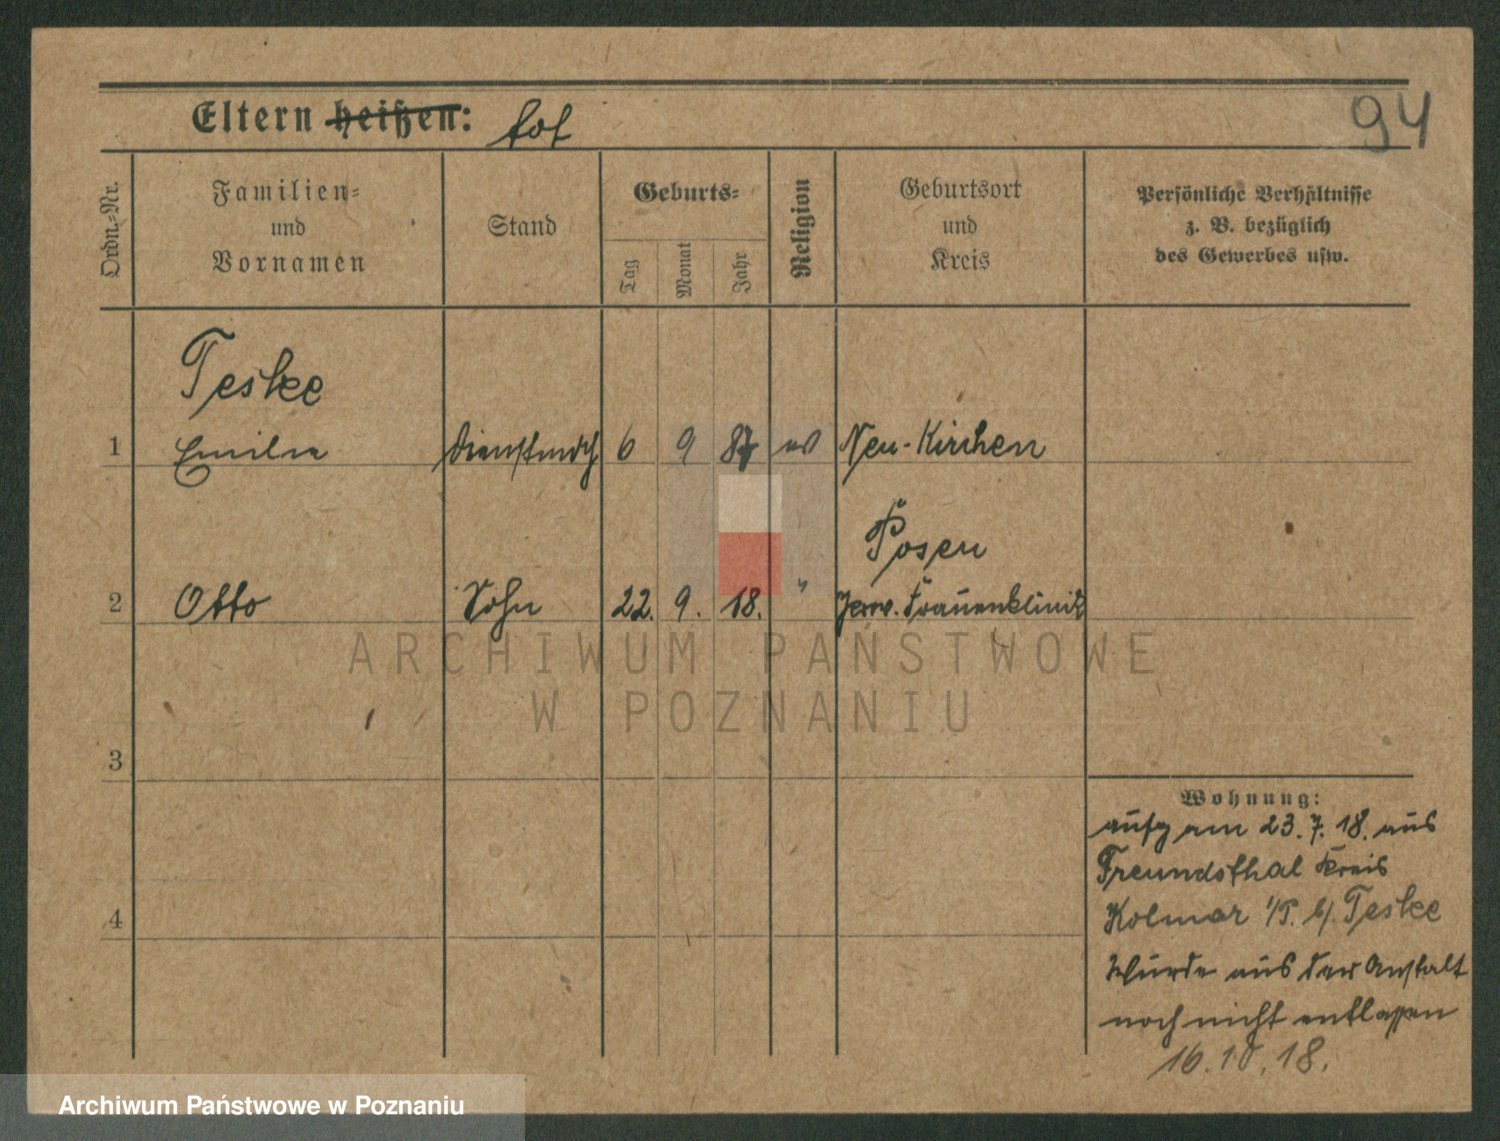 94
Eltern heißen: tot
Ordn.-Nr.
Familien-
und
Vornamen
Stand
Geburts-
Tag
Monat
Jahr
Religion
Geburtsort
und
Kreis
Persönliche Verhältnisse
z. B. bezüglich
des Gewerbes usw.
Teske
1 Emilie Dienstmdch 6 9 87 ev Neu-Kirchen
Posen
2 Otto Sohn 22. 9. 18. " Frauenklinik
3
4
Wohnung:
aufg am 23. 7. 18. aus
Freundsthal Kreis
Kolmar i/P. b/. Teske
Wurde aus der Anstalt
noch nicht entlassen
16.10.18.
ARCHIWUM PAŃSTWOWE
W POZNANIU
Archiwum Państwowe w Poznaniu